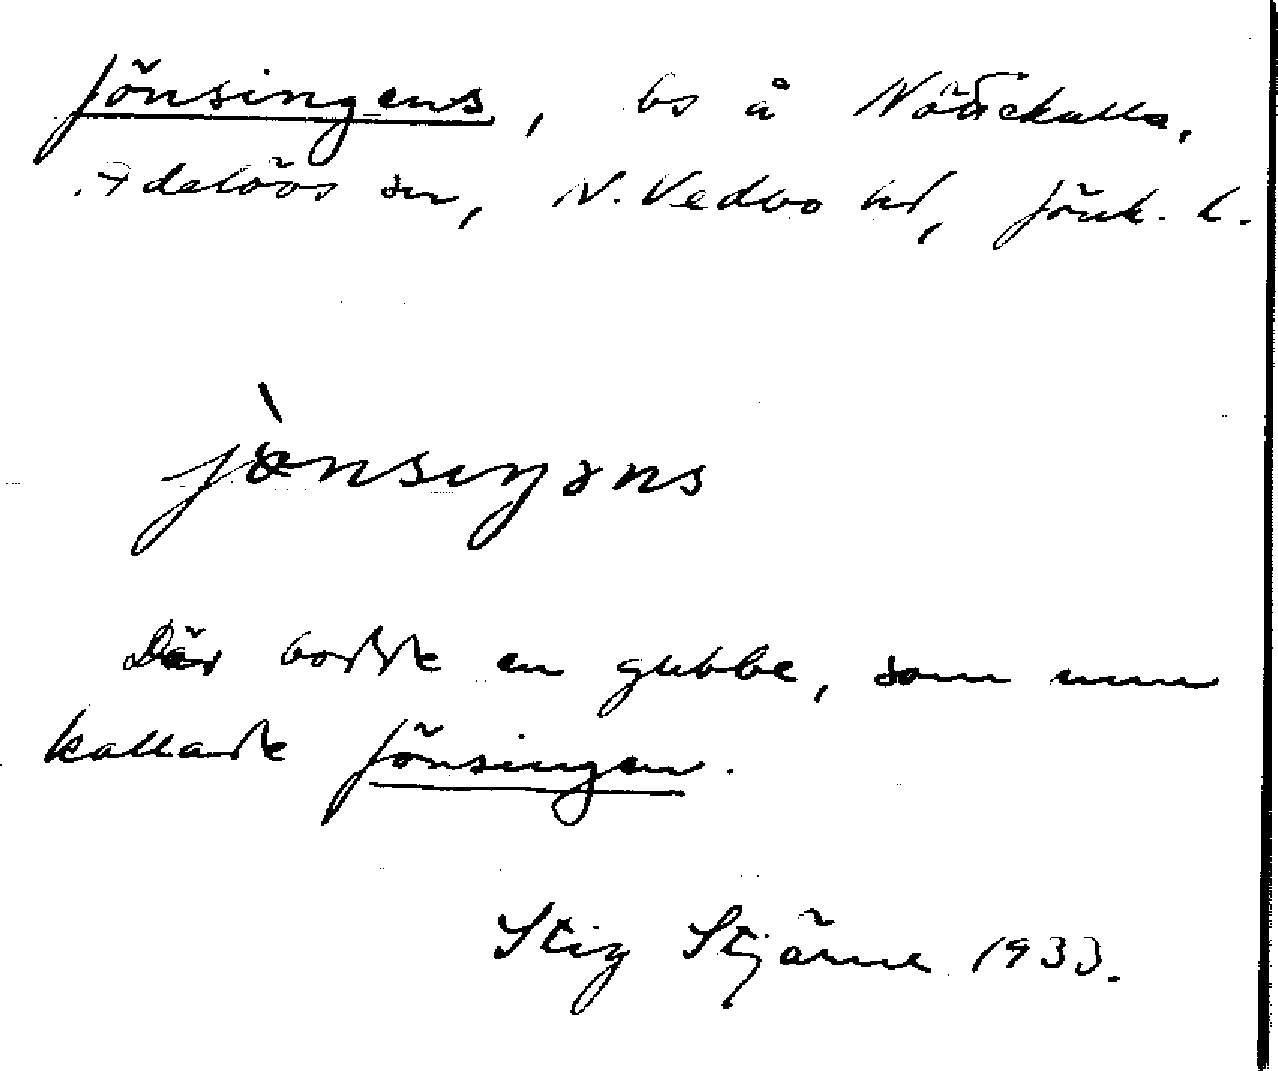 Jönsingens, bs å Nötlekulla,
Adelövs sn, N. Vedbo hd, Jönk. l.
jönsiŋəns
Där bodde en gubbe, som mun
kallade Jönsingen.
Stig Stjärne 1933.